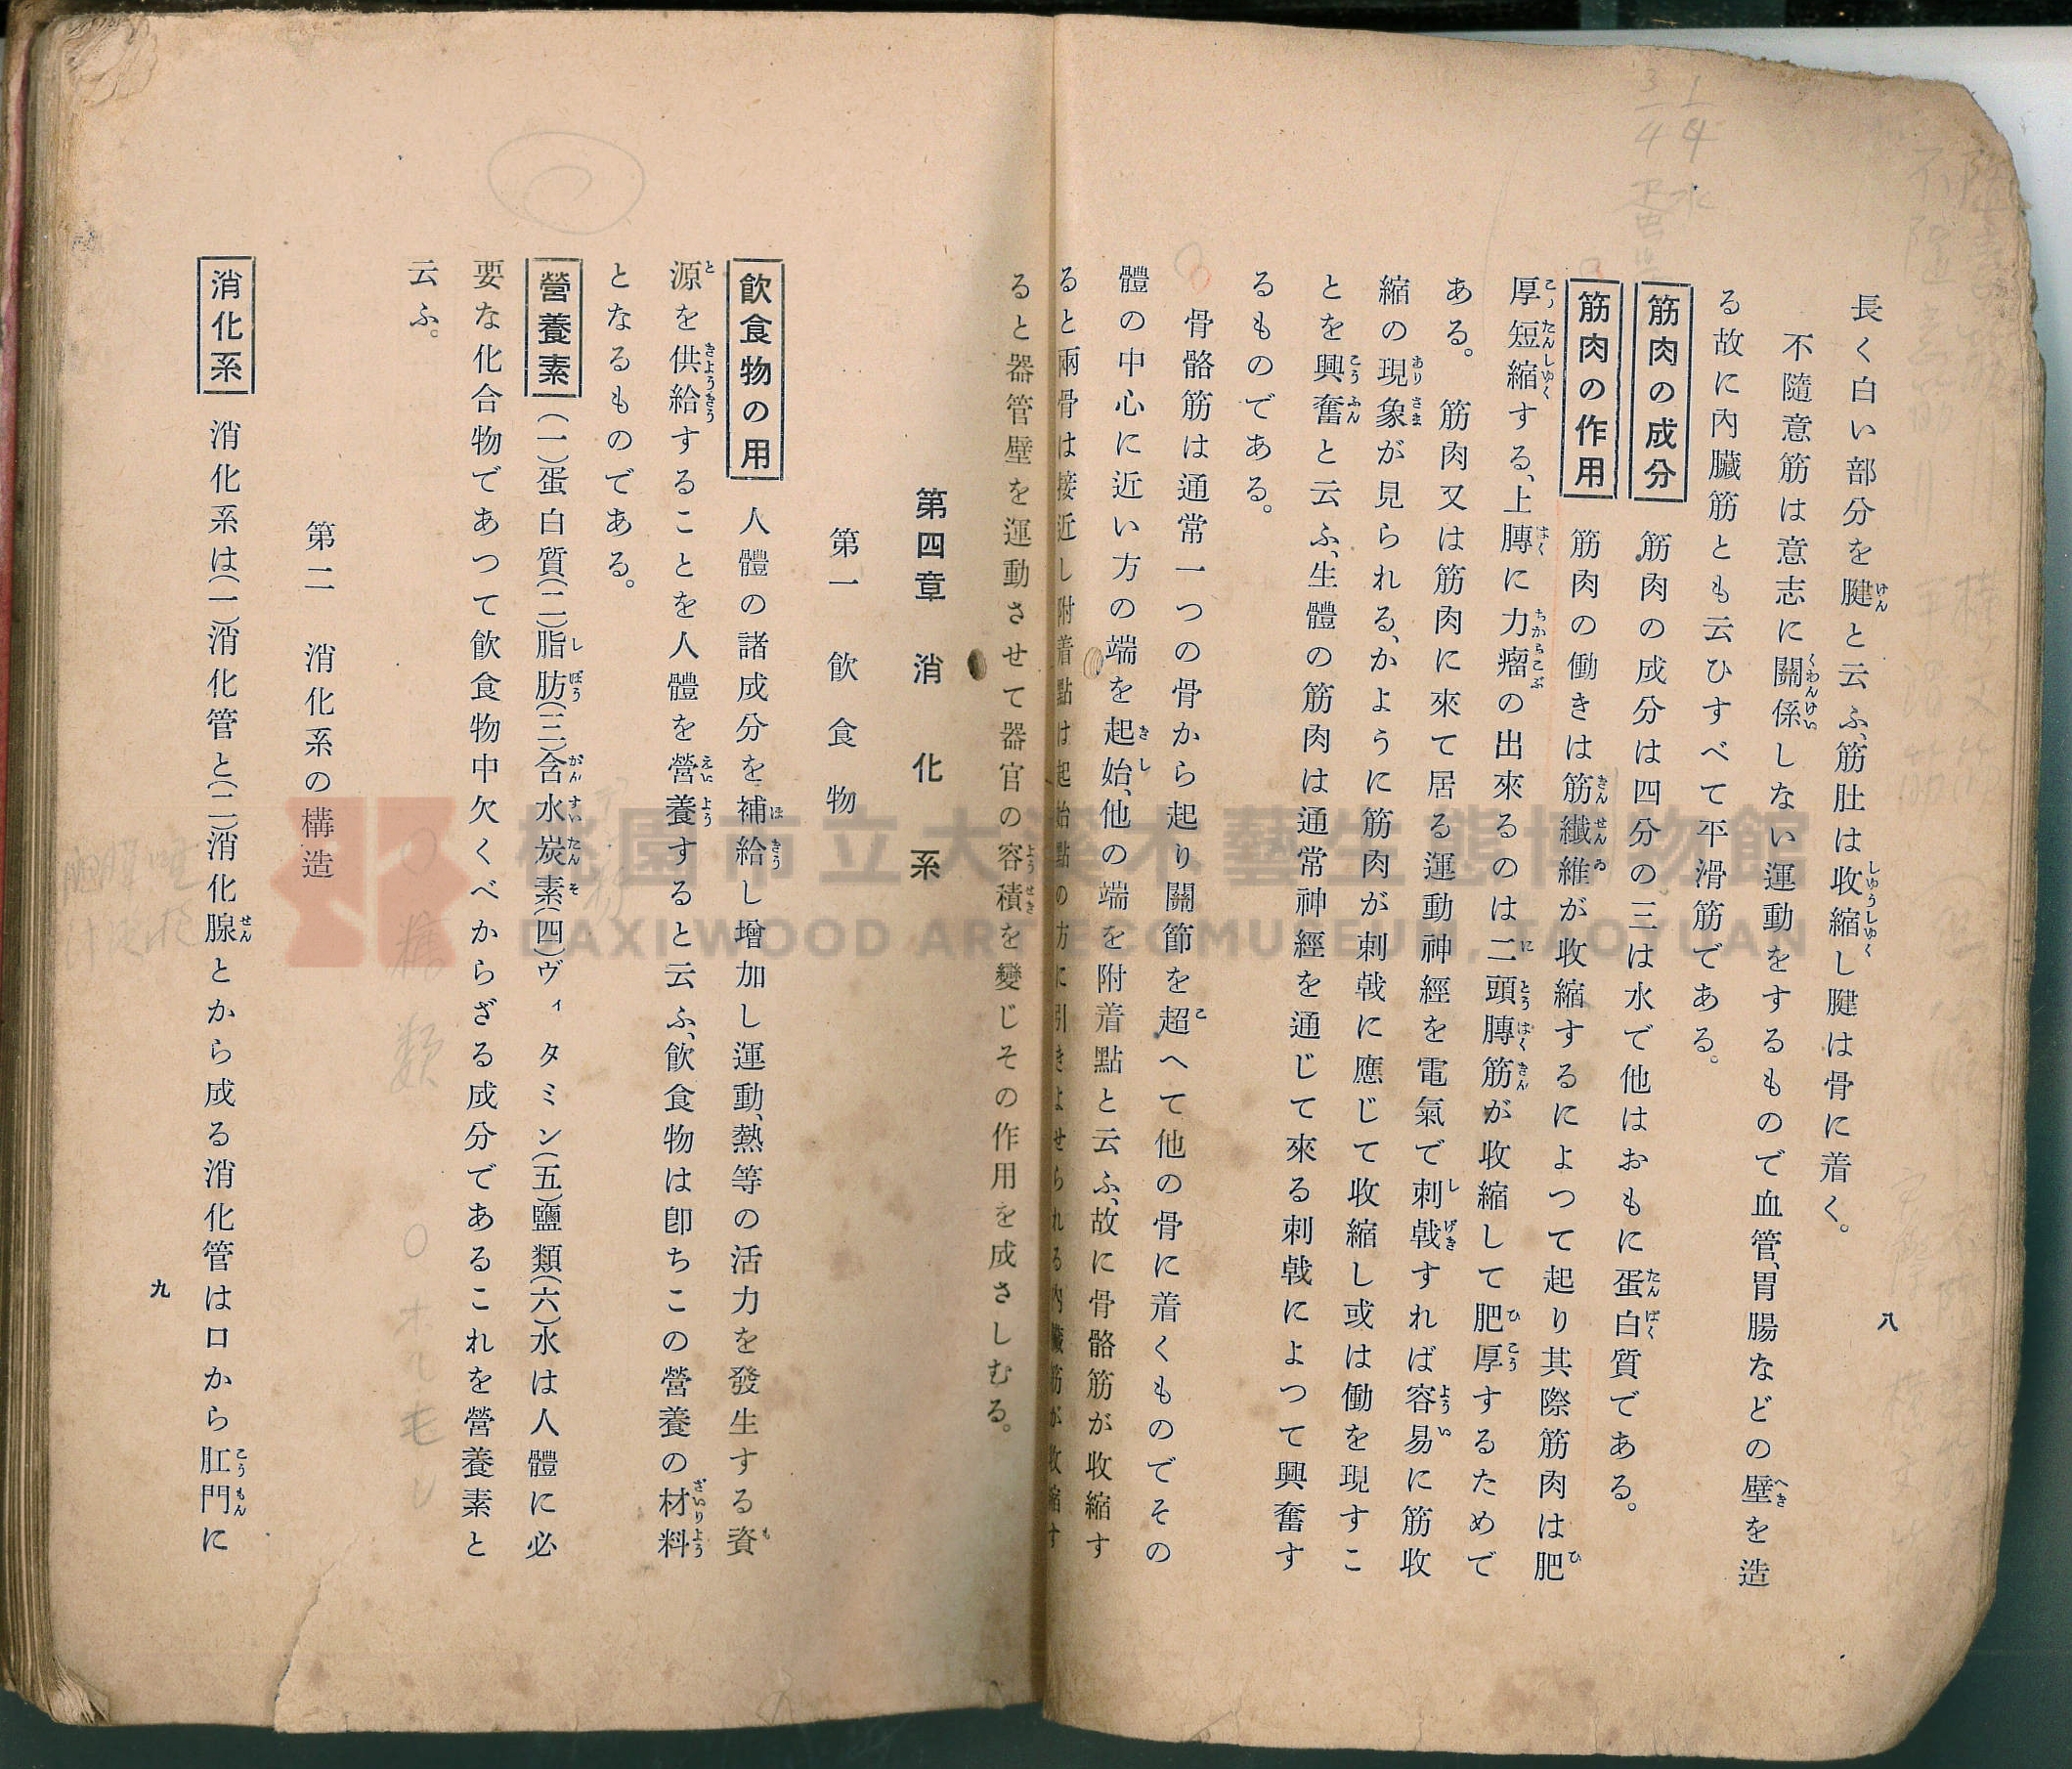 長く白い部分を腱と云ふ、筋肚は收縮し腱は骨に着く。
不隨意筋は意志に關係しない運動をするもので血管、胃腸などの壁を造
る故に內臟筋とも云ひすべて平滑筋である。
筋肉の成分 筋肉の成分は四分の三は水で他はおもに蛋白質である。
筋肉の作用 筋肉の働きは筋纖維が收縮するによつて起り其際筋肉は肥
厚短縮する、上膊に力瘤の出來るのは二頭膊筋が收縮して肥厚するためで
ある。筋肉又は筋肉に來て居る運動神經を電氣で刺戟すれば容易に筋收
縮の現象が見られる、かように筋肉が刺戟に應じて收縮し或は働を現すこ
とを興奮と云ふ、生體の筋肉は通常神經を通じて來る刺戟によつて興奮す
るものである。
骨骼筋は通常一つの骨から起り關節を超へて他の骨に着くものでその
體の中心に近い方の端を起始、他の端を附着點と云ふ、故に骨骼筋が收縮す
ると兩骨は接近し附着點は起始點の方に引きよせられる內臟筋が收縮す
八
ると器管壁を運動させて器官の容積を變じその作用を成さしむる。
第四章 消化系
第一 飲食物
飲食物の用 人體の諸成分を補給し增加し運動、熱等の活力を發生する資
源を供給することを人體を營養すると云ふ、飲食物は卽ちこの營養の材料
となるものである。
營養素 (一)蛋白質(二)脂肪(三)含水炭素(四)ヴィタミン(五)鹽類(六)水は人體に必
要な化合物であつて飲食物中欠くべからざる成分であるこれを營養素と
云ふ。
第二 消化系の構造
消化系 消化系は(一)消化管と(二)消化腺とから成る消化管は口から肛門に
九
桃園市立大溪木藝生態博物館
DAXI WOOD ART ECOMUSEUM, TAOYUAN